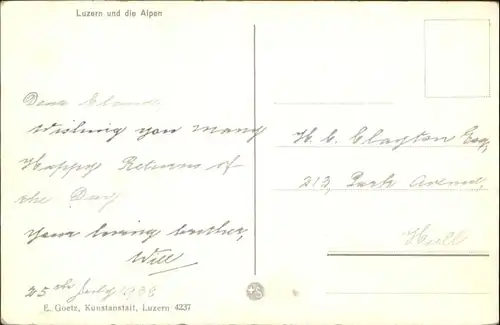 Luzern und die Alpen
Dear Claude
Wishing you many
Happy Returns of
the Day
Your loving brother,
Will
25th July 1938
H. C. Clayton Esq,
213, Park Avenue,
Hull
E. Goetz, Kunstanstalt, Luzern 4237